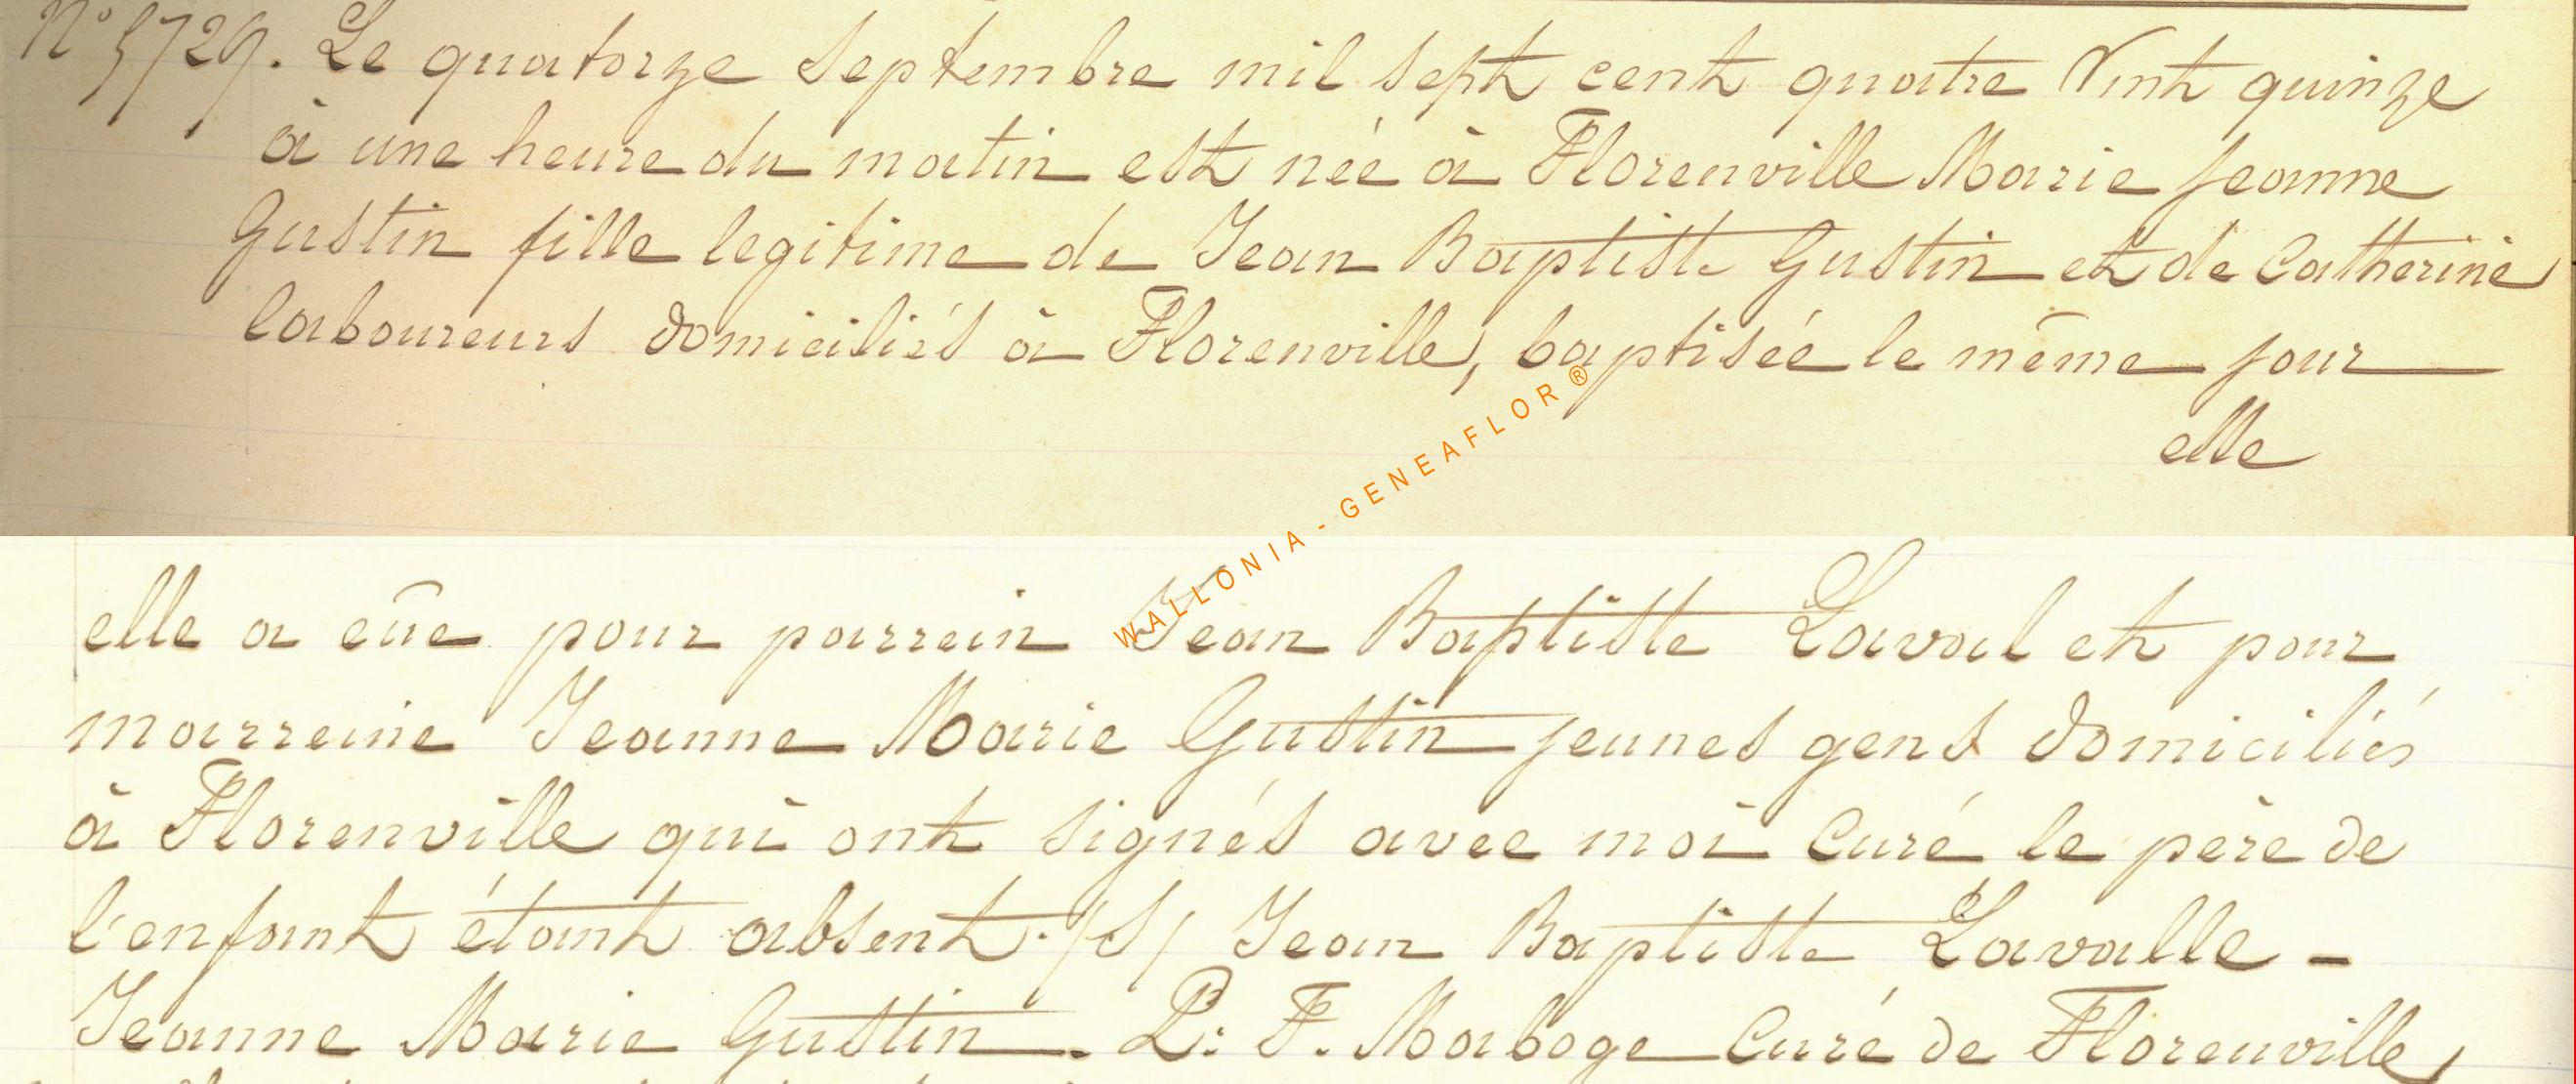 N° 5729. Le quatorze Septembre mil sept cent quatre Vint quinze
à une heure du matin est née à Florenville Marie Jeanne
Gustin fille legitime de Jean Baptiste Gustin et de Catherine
laboureurs domiciliés à Florenville, baptisée le même jour
elle
WALLONIA - GENEAFLOR ®
elle a eûe pour parrein Jean Baptiste Laval et pour
marreine Jeanne Marie Gustin jeunes gens domiciliés
à Florenville qui ont signés avec moi Curé le père de
l'enfant étant absent. /S/ Jean Baptiste Lavalle -
Jeanne Marie Gustin. P. F. Maboge Curé de Florenville,